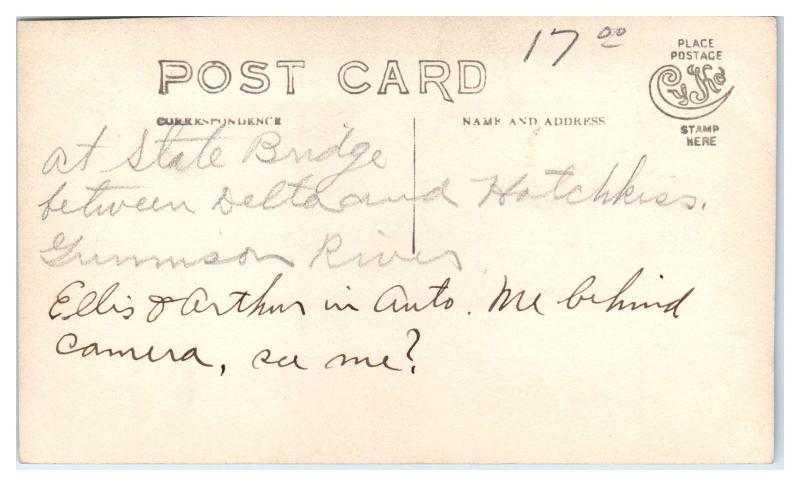 17 00
POST CARD
PLACE
POSTAGE
Cyko
STAMP
HERE
CORRESPONDENCE
NAME AND ADDRESS
at State Bridge
between Delta and Hotchkiss.
Gunnison River
Ellis & Arthur in Auto. Me behind
camera, see me?